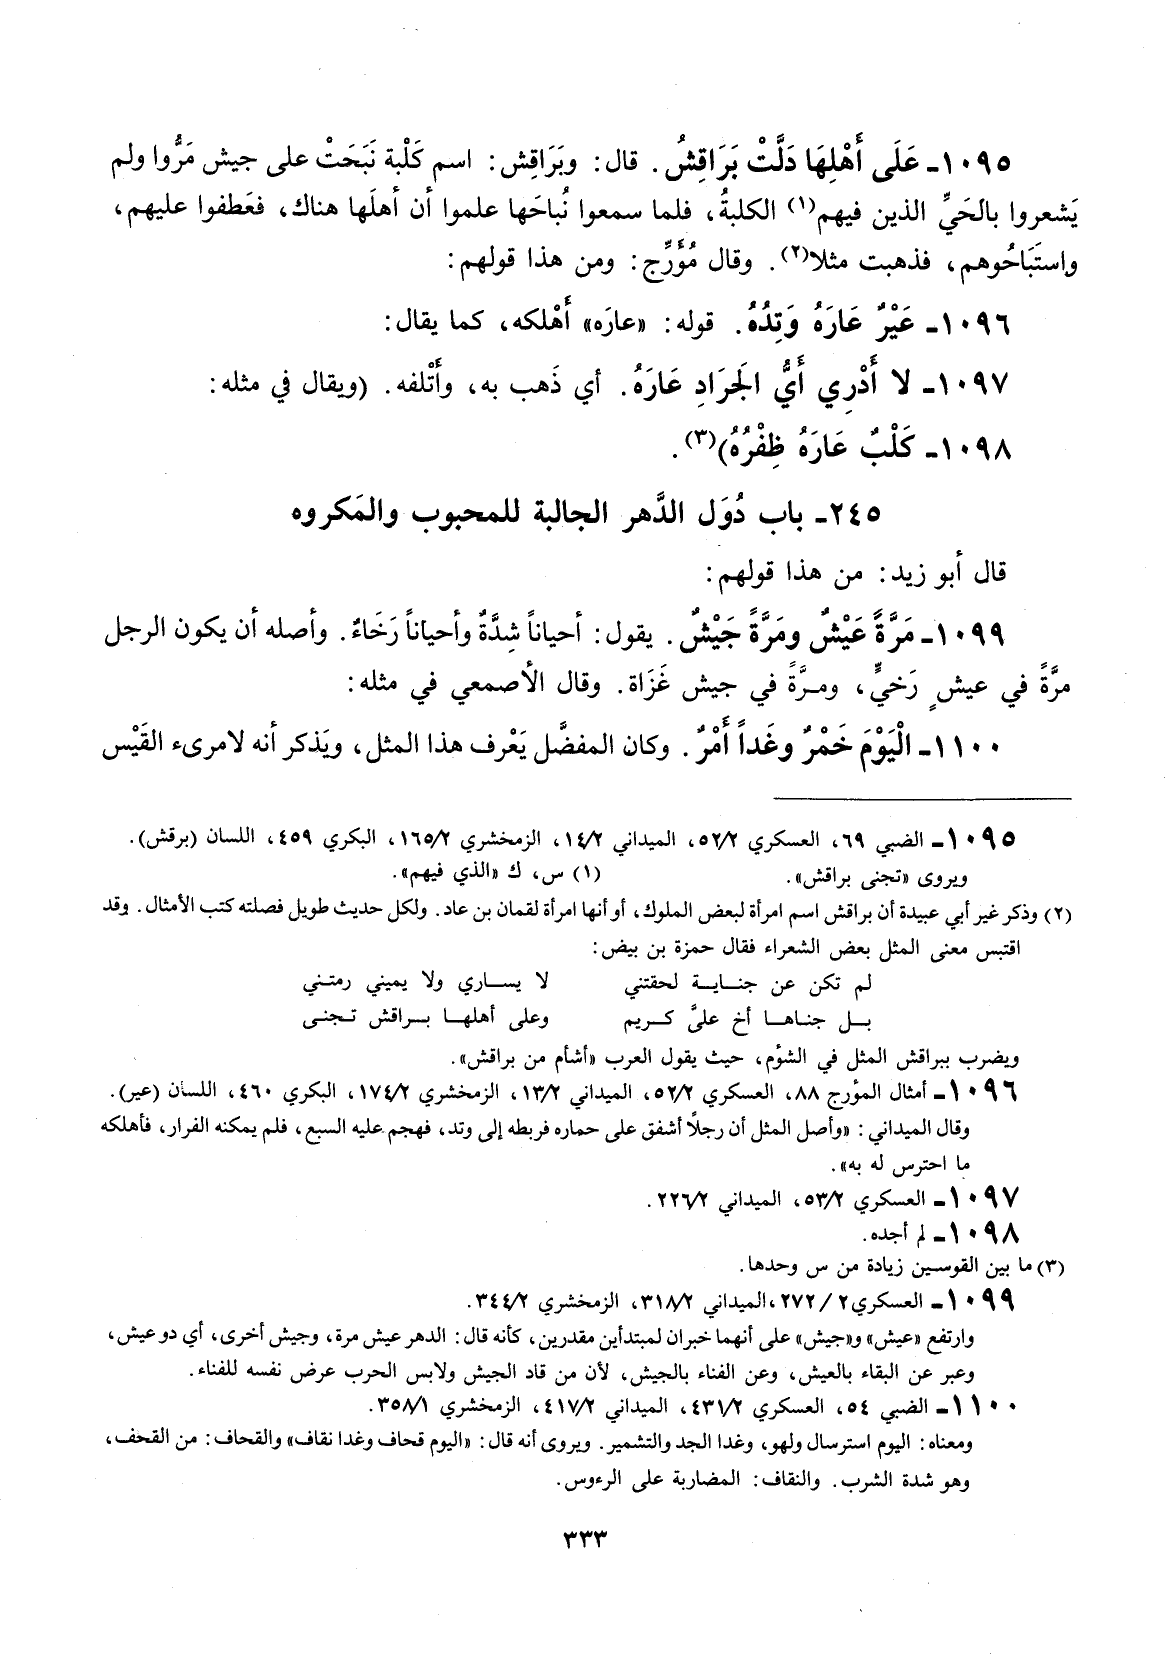 ١٠٩٥ـ عَلَى أَهْلِهَا دَلَّتْ بَرَاقِشُ. قال: وبَرَاقِش: اسم كَلْبة نَبَحَتْ على جيش مَرُّوا ولم
يَشعروا بالحَيِّ الذين فيهم(١) الكلبةُ، فلما سمعوا نُباحَها علموا أن أهلَها هناك، فعَطفوا عليهم،
واستَبَاحُوهم، فذهبت مثلا(٢). وقال مُؤَرِّج: ومن هذا قولهم:
١٠٩٦ـ عَيْرٌ عَارَهُ وَتِدُهُ. قوله: «عارَه» أَهْلكه، كما يقال:
١٠٩٧ـ لا أَدْرِي أَيُّ الجَرَادِ عَارَهُ. أي ذَهب به، وأَتْلفه. (ويقال في مثله:
١٠٩٨ـ كَلْبٌ عَارَهُ ظِفْرُهُ)(٣).
٢٤٥ـ باب دُوَل الدَّهر الجالبة للمحبوب والمَكروه
قال أبو زيد: من هذا قولهم:
١٠٩٩ـ مَرَّةً عَيْشٌ ومَرَّةً جَيْشٌ. يقول: أحياناً شِدَّةٌ وأحياناً رَخَاءٌ. وأصله أن يكون الرجل
مرَّةً في عيشٍ رَخيٍّ، ومرَّةً في جيش غَزَاة. وقال الأصمعي في مثله:
١١٠٠ـ الْيَوْمَ خَمْرٌ وغَداً أَمْرٌ. وكان المفضَّل يَعْرف هذا المثل، ويَذكر أنه لامرىء القَيْس
١٠٩٥ـ الضبي ٦٩، العسكري ٥٢/٢، الميداني ١٤/٢، الزمخشري ١٦٥/٢، البكري ٤٥٩، اللسان (برقش).
ويروى «تجنى براقش». (١) س، ك «الذي فيهم».
(٢) وذكر غير أبي عبيدة أن براقش اسم امرأة لبعض الملوك، أو أنها امرأة لقمان بن عاد. ولكل حديث طويل فصلته كتب الأمثال. وقد
اقتبس معنى المثل بعض الشعراء فقال حمزة بن بيض:
لم تكن عن جنـايـة لحقتني لا يسـاري ولا يميني رمتـني
بـل جناهـا أخ عليَّ كـريم وعلى أهلهـا بـراقش تـجنـى
ويضرب ببراقش المثل في الشؤم، حيث يقول العرب «أشأم من براقش».
١٠٩٦ـ أمثال المؤرج ٨٨، العسكري ٥٢/٢، الميداني ١٣/٢، الزمخشري ١٧٤/٢، البكري ٤٦٠، اللسان (عير).
وقال الميداني: «وأصل المثل أن رجلًا أشفق على حماره فربطه إلى وتد، فهجم عليه السبع، فلم يمكنه الفرار، فأهلكه
ما احترس له به».
١٠٩٧ـ العسكري ٥٣/٢، الميداني ٢٢٦/٢.
١٠٩٨ـ لم أجده.
(٣) ما بين القوسين زيادة من س وحدها.
١٠٩٩ـ العسكري٢ / ٢٧٢،الميداني ٣١٨/٢، الزمخشري ٣٤٤/٢.
وارتفع «عيش» و«جيش» على أنهما خبران لمبتدأين مقدرين، كأنه قال: الدهر عيش مرة، وجيش أخرى، أي ذو عيش،
وعبر عن البقاء بالعيش، وعن الفناء بالجيش، لأن من قاد الجيش ولابس الحرب عرض نفسه للفناء.
١١٠٠ـ الضبي ٥٤، العسكري ٤٣١/٢، الميداني ٤١٧/٢، الزمخشري ٣٥٨/١.
ومعناه: اليوم استرسال ولهو، وغدا الجد والتشمير. ويروى أنه قال: «اليوم قحاف وغدا نقاف» والقحاف: من القحف،
وهو شدة الشرب. والنقاف: المضاربة على الرءوس.
٣٣٣